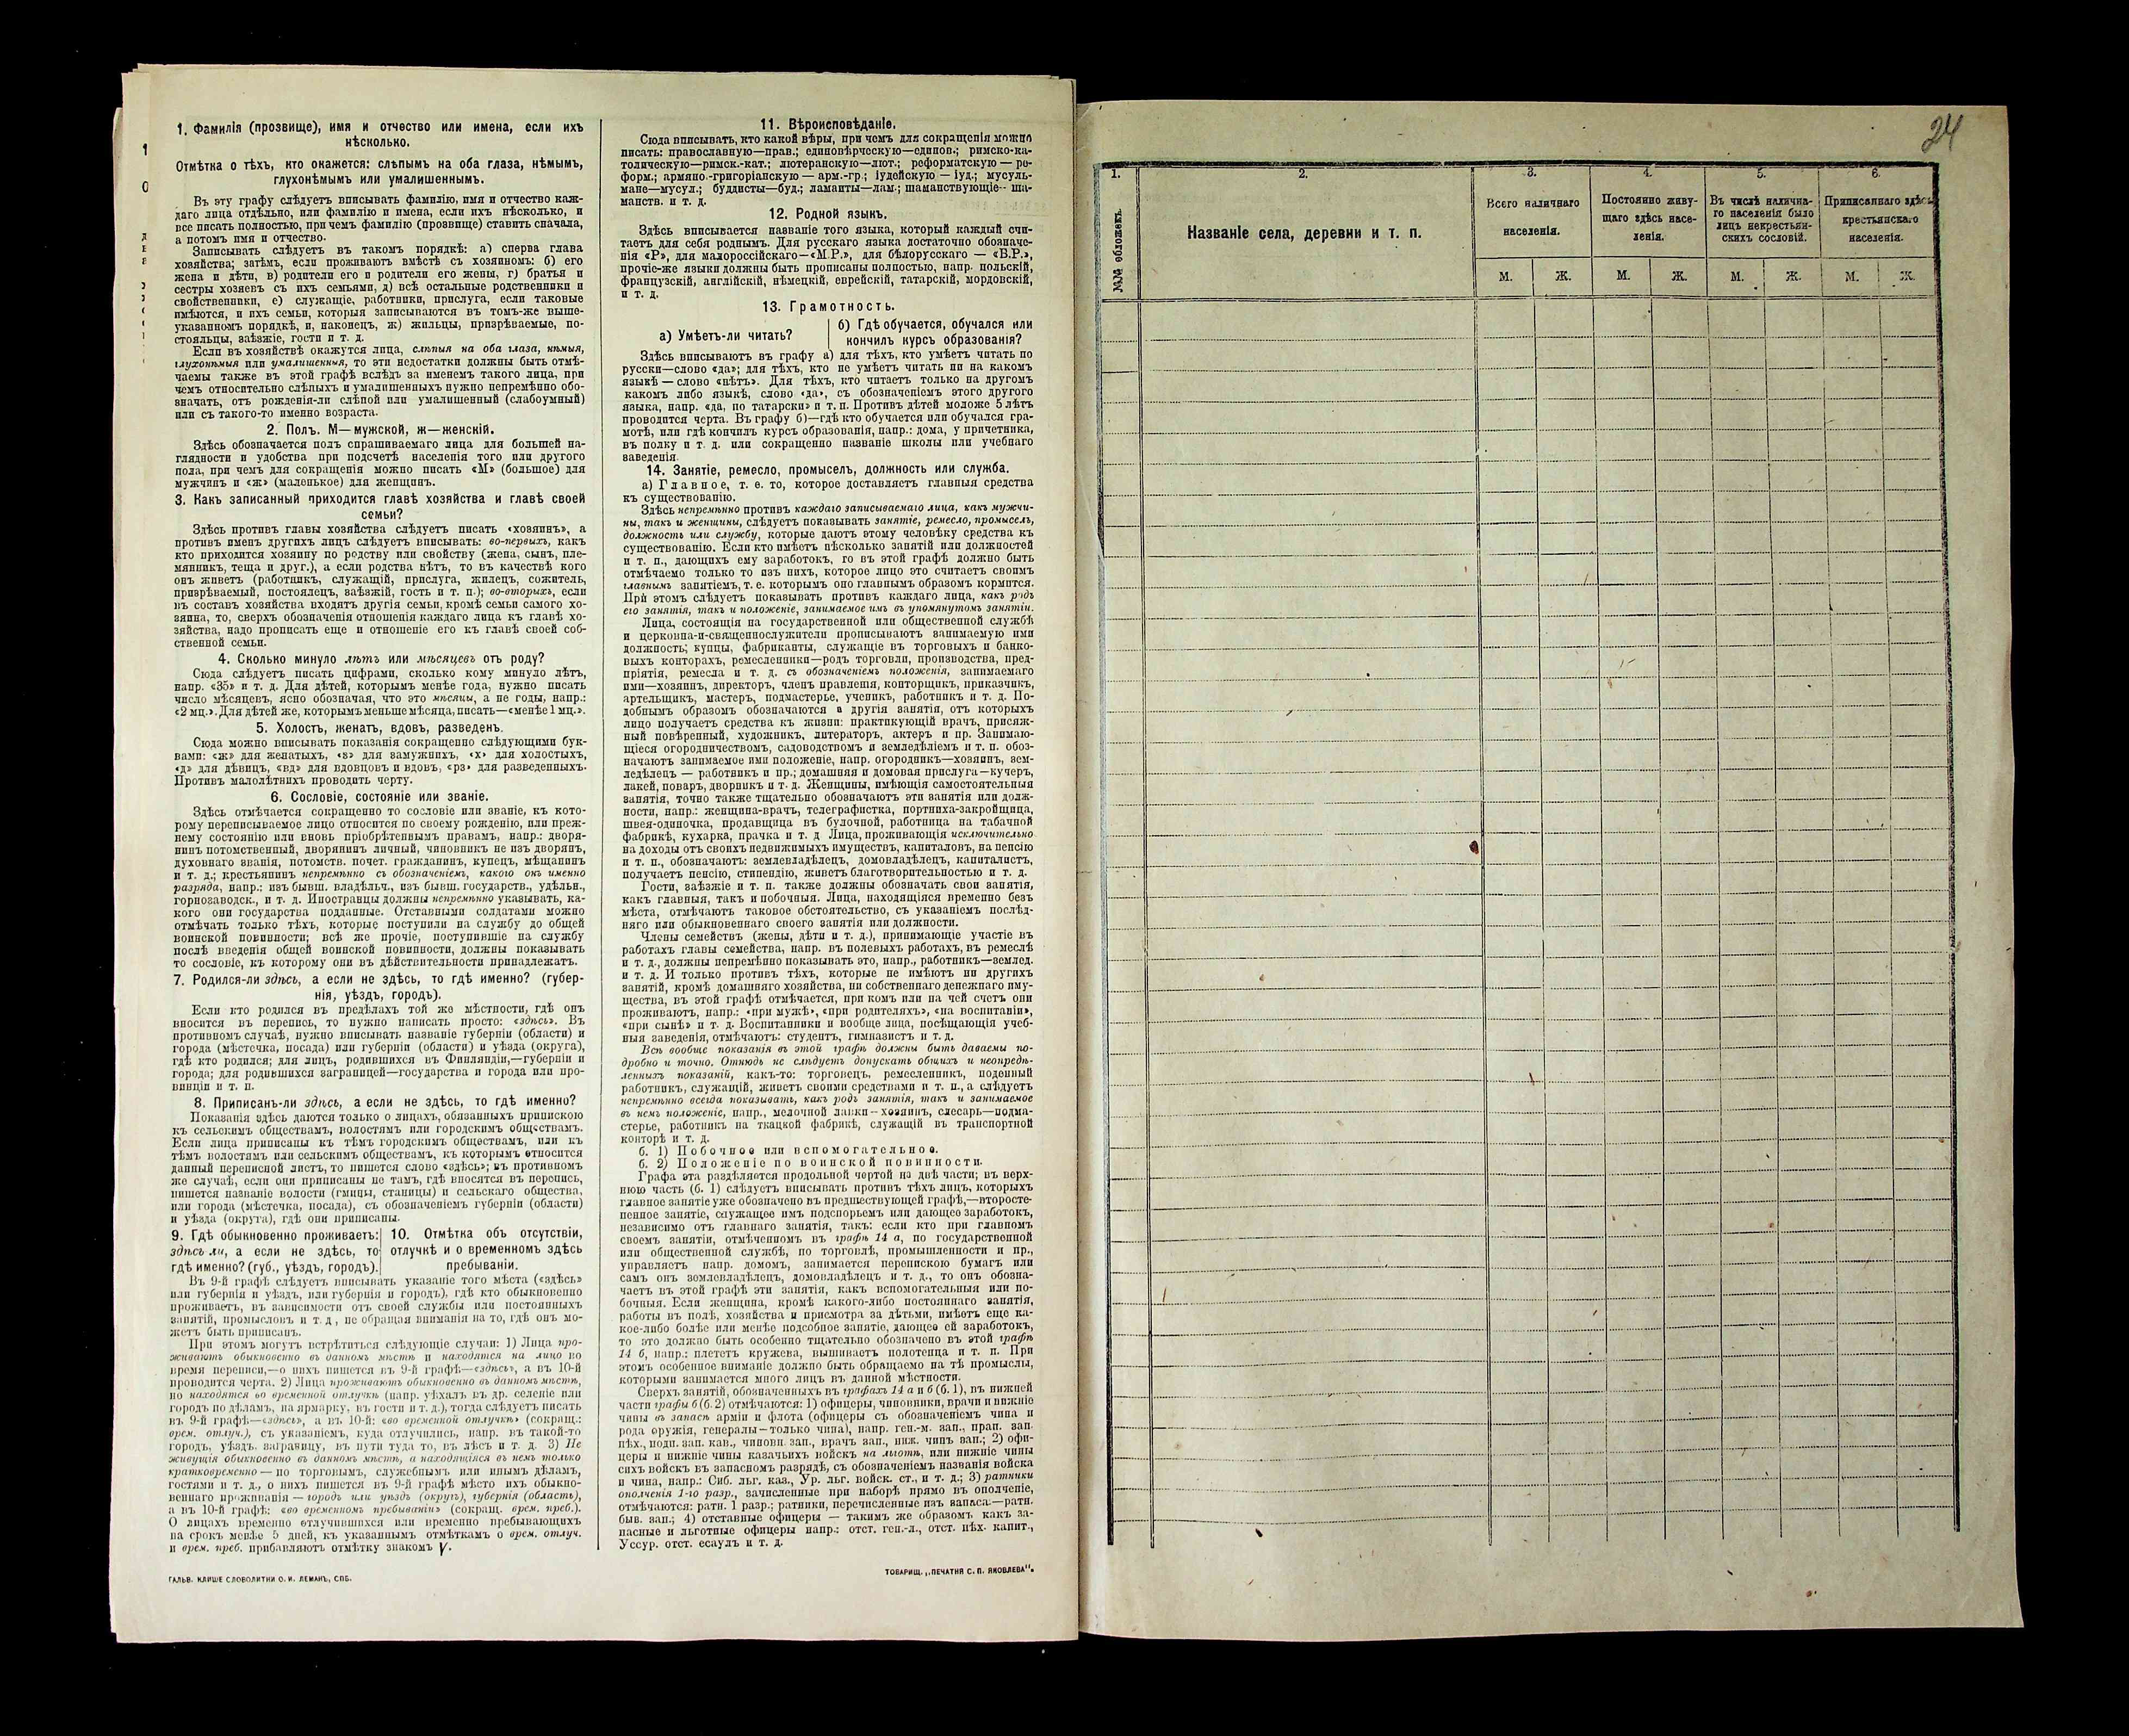 1. Фамилія (прозвище), имя и отчество или имена, если ихъ
нѣсколько.
Отмѣтка о тѣхъ, кто окажется: слѣпымъ на оба глаза, нѣмымъ,
глухонѣмымъ или умалишеннымъ.
Въ эту графу слѣдуетъ вписывать фамилію, имя и отчество каж-
даго лица отдѣльно, или фамилію и имена, если ихъ нѣсколько, и
все писать полностью, при чемъ фамилію (прозвище) ставить сначала,
а потомъ имя и отчество.
Записывать слѣдуетъ въ такомъ порядкѣ: а) сперва глава
хозяйства; затѣмъ, если проживаютъ вмѣстѣ съ хозяиномъ: б) его
жена и дѣти, в) родители его и родители его жены, г) братья и
сестры хозяевъ съ ихъ семьями, д) всѣ остальные родственники и
свойственники, е) служащіе, работники, прислуга, если таковые
имѣются, и ихъ семьи, которыя записываются въ томъ-же выше-
указанномъ порядкѣ, и, наконецъ, ж) жильцы, призрѣваемые, по-
стояльцы, заѣзжіе, гости и т. д.
Если въ хозяйствѣ окажутся лица, слѣпыя на оба глаза, нѣмыя,
глухонѣмыя или умалишенныя, то эти недостатки должны быть отмѣ-
чаемы также въ этой графѣ вслѣдъ за именемъ такого лица, при
чемъ относительно слѣпыхъ и умалишенныхъ нужно непремѣнно обо-
значать, отъ рожденія-ли слѣпой или умалишенный (слабоумный)
или съ такого-то именно возраста.
2. Полъ. М—мужской, ж—женскій.
Здѣсь обозначается полъ спрашиваемаго лица для большей на-
глядности и удобства при подсчетѣ населенія того или другого
пола, при чемъ для сокращенія можно писать «М» (большое) для
мужчинъ и «ж» (маленькое) для женщинъ.
3. Какъ записанный приходится главѣ хозяйства и главѣ своей
семьи?
Здѣсь противъ главы хозяйства слѣдуетъ писать «хозяинъ», а
противъ именъ другихъ лицъ слѣдуетъ вписывать: во-первыхъ, какъ
кто приходится хозяину по родству или свойству (жена, сынъ, пле-
мянникъ, теща и друг.), а если родства нѣтъ, то въ качествѣ кого
онъ живетъ (работникъ, служащій, прислуга, жилецъ, сожитель,
призрѣваемый, постоялецъ, заѣзжій, гость и т. п.); во-вторыхъ, если
въ составъ хозяйства входятъ другія семьи, кромѣ семьи самого хо-
зяина, то, сверхъ обозначенія отношенія каждаго лица къ главѣ хо-
зяйства, надо прописать еще и отношеніе его къ главѣ своей соб-
ственной семьи.
4. Сколько минуло лѣтъ или мѣсяцевъ отъ роду?
Сюда слѣдуетъ писать цифрами, сколько кому минуло лѣтъ,
напр. «35» и т. д. Для дѣтей, которымъ менѣе года, нужно писать
число мѣсяцевъ, ясно обозначая, что это мѣсяцы, а не годы, напр.:
«2 мц.». Для дѣтей же, которымъ меньше мѣсяца, писать—«менѣе 1 мц.».
5. Холостъ, женатъ, вдовъ, разведенъ.
Сюда можно вписывать показанія сокращенно слѣдующими бук-
вами: «ж» для женатыхъ, «з» для замужнихъ, «х» для холостыхъ,
«д» для дѣвицъ, «вд» для вдовцовъ и вдовъ, «рз» для разведенныхъ.
Противъ малолѣтнихъ проводить черту.
6. Сословіе, состояніе или званіе.
Здѣсь отмѣчается сокращенно то сословіе или званіе, къ кото-
рому переписываемое лицо относится по своему рожденію, или преж-
нему состоянію или вновь пріобрѣтеннымъ правамъ, напр.: дворя-
нинъ потомственный, дворянинъ личный, чиновникъ не изъ дворянъ,
духовнаго званія, потомств. почет. гражданинъ, купецъ, мѣщанинъ
и т. д.; крестьянинъ непремѣнно съ обозначеніемъ, какого онъ именно
разряда, напр.: изъ бывш. владѣльч., изъ бывш. государств., удѣльн.,
горнозаводск., и т. д. Иностранцы должны непремѣнно указывать, ка-
кого они государства подданные. Отставными солдатами можно
отмѣчать только тѣхъ, которые поступили на службу до общей
воинской повинности; всѣ же прочіе, поступившіе на службу
послѣ введенія общей воинской повинности, должны показывать
то сословіе, къ которому они въ дѣйствительности принадлежатъ.
7. Родился-ли здѣсь, а если не здѣсь, то гдѣ именно? (губер-
нія, уѣздъ, городъ).
Если кто родился въ предѣлахъ той же мѣстности, гдѣ онъ
вносится въ перепись, то нужно написать просто: «здѣсь». Въ
противномъ случаѣ, нужно вписывать названіе губерніи (области) и
города (мѣстечка, посада) или губерніи (области) и уѣзда (округа),
гдѣ кто родился; для лицъ, родившихся въ Финляндіи,—губерніи и
города; для родившихся заграницей—государства и города или про-
винціи и т. п.
8. Приписанъ-ли здѣсь, а если не здѣсь, то гдѣ именно?
Показанія здѣсь даются только о лицахъ, обязанныхъ припискою
къ сельскимъ обществамъ, волостямъ или городскимъ обществамъ.
Если лица приписаны къ тѣмъ городскимъ обществамъ, или къ
тѣмъ волостямъ или сельскимъ обществамъ, къ которымъ относится
данный переписной листъ, то пишется слово «здѣсь»; въ противномъ
же случаѣ, если они приписаны не тамъ, гдѣ вносятся въ перепись,
пишется названіе волости (гмины, станицы) и сельскаго общества,
или города (мѣстечка, посада), съ обозначеніемъ губерніи (области)
и уѣзда (округа), гдѣ они приписаны.
9. Гдѣ обыкновенно проживаетъ:
здѣсь ли, а если не здѣсь, то
гдѣ именно? (губ., уѣздъ, городъ).
10. Отмѣтка объ отсутствіи,
отлучкѣ и о временномъ здѣсь
пребываніи.
Въ 9-й графѣ слѣдуетъ вписывать указаніе того мѣста («здѣсь»
или губернія и уѣздъ, или губернія и городъ), гдѣ кто обыкновенно
проживаетъ, въ зависимости отъ своей службы или постоянныхъ
занятій, промысловъ и т. д., не обращая вниманія на то, гдѣ онъ мо-
жетъ быть приписанъ.
При этомъ могутъ встрѣтиться слѣдующіе случаи: 1) Лица про-
живаютъ обыкновенно въ данномъ мѣстѣ и находятся на лицо во
время переписи,—о нихъ пишется въ 9-й графѣ—«здѣсь», а въ 10-й
проводится черта. 2) Лица проживаютъ обыкновенно въ данномъ мѣстѣ,
но находятся во временной отлучкѣ (напр. уѣхалъ въ др. селеніе или
городъ по дѣламъ, на ярмарку, въ гости и т. д.), тогда слѣдуетъ писать
въ 9-й графѣ—«здѣсь», а въ 10-й: «во временной отлучкѣ» (сокращ.:
врем. отлуч.), съ указаніемъ, куда отлучились, напр. въ такой-то
городъ, уѣздъ, заграницу, въ пути туда то, въ лѣсъ и т. д. 3) Не
живущія обыкновенно въ данномъ мѣстѣ, а находящіяся въ немъ только
кратковременно — по торговымъ, служебнымъ или инымъ дѣламъ,
гостями и т. д., о нихъ пишется въ 9-й графѣ мѣсто ихъ обыкно-
веннаго проживанія — городъ или уѣздъ (округъ), губернія (область),
а въ 10-й графѣ: «во временномъ пребываніи» (сокращ. врем. преб.).
О лицахъ временно отлучившихся или временно пребывающихъ
на срокъ менѣе 5 дней, къ указаннымъ отмѣткамъ о врем. отлуч.
и врем. преб. прибавляютъ отмѣтку знакомъ V.
ГАЛЬВ. КЛИШЕ СЛОВОЛИТНИ О. И. ЛЕМАНЪ, СПБ.
11. Вѣроисповѣданіе.
Сюда вписывать, кто какой вѣры, при чемъ для сокращенія можно
писать: православную—прав.; единовѣрческую—единов.; римско-ка-
толическую—римск.-кат.; лютеранскую—лют.; реформатскую — ре-
форм.; армяно.-григоріанскую — арм.-гр.; іудейскую — іуд.; мусуль-
мане—мусул.; буддисты—буд.; ламаиты—лам.; шаманствующіе— ша-
манств. и т. д.
12. Родной языкъ.
Здѣсь вписывается названіе того языка, который каждый счи-
таетъ для себя роднымъ. Для русскаго языка достаточно обозначе-
нія «Р», для малороссійскаго—«М.Р.», для бѣлорусскаго — «Б.Р.»,
прочіе-же языки должны быть прописаны полностью, напр. польскій,
французскій, англійскій, нѣмецкій, еврейскій, татарскій, мордовскій,
и т. д.
13. Грамотность.
а) Умѣетъ-ли читать?
б) Гдѣ обучается, обучался или
кончилъ курсъ образованія?
Здѣсь вписываютъ въ графу а) для тѣхъ, кто умѣетъ читать по
русски—слово «да»; для тѣхъ, кто не умѣетъ читать ни на какомъ
языкѣ — слово «нѣтъ». Для тѣхъ, кто читаетъ только на другомъ
какомъ либо языкѣ, слово «да», съ обозначеніемъ этого другого
языка, напр. «да, по татарски» и т. п. Противъ дѣтей моложе 5 лѣтъ
проводится черта. Въ графу б)—гдѣ кто обучается или обучался гра-
мотѣ, или гдѣ кончилъ курсъ образованія, напр.: дома, у причетника,
въ полку и т. д. или сокращенно названіе школы или учебнаго
заведенія.
14. Занятіе, ремесло, промыселъ, должность или служба.
а) Главное, т. е. то, которое доставляетъ главныя средства
къ существованію.
Здѣсь непремѣнно противъ каждаго записываемаго лица, какъ мужчи-
ны, такъ и женщины, слѣдуетъ показывать занятіе, ремесло, промыселъ,
должность или службу, которые даютъ этому человѣку средства къ
существованію. Если кто имѣетъ нѣсколько занятій или должностей
и т. п., дающихъ ему заработокъ, то въ этой графѣ должно быть
отмѣчаемо только то изъ нихъ, которое лицо это считаетъ своимъ
главнымъ занятіемъ, т. е. которымъ оно главнымъ образомъ кормится.
При этомъ слѣдуетъ показывать противъ каждаго лица, какъ родъ
его занятія, такъ и положеніе, занимаемое имъ въ упомянутомъ занятіи.
Лица, состоящія на государственной или общественной службѣ
и церковна-и-священнослужители прописываютъ занимаемую ими
должность; купцы, фабриканты, служащіе въ торговыхъ и банко-
выхъ конторахъ, ремесленники—родъ торговли, производства, пред-
пріятія, ремесла и т. д. съ обозначеніемъ положенія, занимаемаго
ими—хозяинъ, директоръ, членъ правленія, конторщикъ, приказчикъ,
артельщикъ, мастеръ, подмастерье, ученикъ, работникъ и т. д. По-
добнымъ образомъ обозначаются и другія занятія, отъ которыхъ
лицо получаетъ средства къ жизни: практикующій врачъ, присяж-
ный повѣренный, художникъ, литераторъ, актеръ и пр. Занимаю-
щіеся огородничествомъ, садоводствомъ и земледѣліемъ и т. п. обоз-
начаютъ занимаемое ими положеніе, напр. огородникъ—хозяинъ, зем-
ледѣлецъ — работникъ и пр.; домашняя и домовая прислуга—кучеръ,
лакей, поваръ, дворникъ и т. д. Женщины, имѣющія самостоятельныя
занятія, точно также тщательно обозначаютъ эти занятія или долж-
ности, напр.: женщина-врачъ, телеграфистка, портниха-закройщица,
швея-одиночка, продавщица въ булочной, работница на табачной
фабрикѣ, кухарка, прачка и т. д. Лица, проживающія исключительно
на доходы отъ своихъ недвижимыхъ имуществъ, капиталовъ, на пенсію
и т. п., обозначаютъ: землевладѣлецъ, домовладѣлецъ, капиталистъ,
получаетъ пенсію, стипендію, живетъ благотворительностью и т. д.
Гости, заѣзжіе и т. п. также должны обозначать свои занятія,
какъ главныя, такъ и побочныя. Лица, находящіяся временно безъ
мѣста, отмѣчаютъ таковое обстоятельство, съ указаніемъ послѣд-
няго или обыкновеннаго своего занятія или должности.
Члены семействъ (жены, дѣти и т. д.), принимающіе участіе въ
работахъ главы семейства, напр. въ полевыхъ работахъ, въ ремеслѣ
и т. д., должны непремѣнно показывать это, напр., работникъ—землед.
и т. д. И только противъ тѣхъ, которые не имѣютъ ни другихъ
занятій, кромѣ домашняго хозяйства, ни собственнаго денежнаго иму-
щества, въ этой графѣ отмѣчается, при комъ или на чей счетъ они
проживаютъ, напр.: «при мужѣ», «при родителяхъ», «на воспитаніи»,
«при сынѣ» и т. д. Воспитанники и вообще лица, посѣщающія учеб-
ныя заведенія, отмѣчаютъ: студентъ, гимназистъ и т. д.
Всѣ вообще показанія въ этой графѣ должны быть даваемы по-
дробно и точно. Отнюдь не слѣдуетъ допускать общихъ и неопредѣ-
ленныхъ показаній, какъ-то: торговецъ, ремесленникъ, поденный
работникъ, служащій, живетъ своими средствами и т. п., а слѣдуетъ
непремѣнно всегда показывать, какъ родъ занятія, такъ и занимаемое
въ немъ положеніе, напр., мелочной лавки—хозяинъ, слесарь—подма-
стерье, работникъ на ткацкой фабрикѣ, служащій въ транспортной
конторѣ и т. д.
б. 1) Побочное или вспомогательное.
б. 2) Положеніе по воинской повинности.
Графа эта раздѣляется продольной чертой на двѣ части; въ верх-
нюю часть (б. 1) слѣдуетъ вписывать противъ тѣхъ лицъ, которыхъ
главное занятіе уже обозначено въ предшествующей графѣ,—второсте-
пенное занятіе, служащее имъ подспорьемъ или дающее заработокъ,
независимо отъ главнаго занятія, такъ: если кто при главномъ
своемъ занятіи, отмѣченномъ въ графѣ 14 а, по государственной
или общественной службѣ, по торговлѣ, промышленности и пр.,
управляетъ напр. домомъ, занимается перепискою бумагъ или
самъ онъ землевладѣлецъ, домовладѣлецъ и т. д., то онъ обозна-
чаетъ въ этой графѣ эти занятія, какъ вспомогательныя или по-
бочныя. Если женщина, кромѣ какого-либо постояннаго занятія,
работы въ полѣ, хозяйства и присмотра за дѣтьми, имѣетъ еще ка-
кое-либо болѣе или менѣе подсобное занятіе, дающее ей заработокъ,
то это должно быть особенно тщательно обозначено въ этой графѣ
14 б, напр.: плететъ кружева, вышиваетъ полотенца и т. п. При
этомъ особенное вниманіе должно быть обращаемо на тѣ промыслы,
которыми занимается много лицъ въ данной мѣстности.
Сверхъ занятій, обозначенныхъ въ графахъ 14 а и б (б. 1), въ нижней
части графы б (б. 2) отмѣчаются: 1) офицеры, чиновники, врачи и нижніе
чины въ запасѣ арміи и флота (офицеры съ обозначеніемъ чина и
рода оружія, генералы—только чина), напр. ген.-м. зап., прап. зап.
пѣх., подп. зап. кав., чиновн. зап., врачъ зап., ниж. чинъ зап.; 2) офи-
церы и нижніе чины казачьихъ войскъ на льготѣ, или нижніе чины
сихъ войскъ въ запасномъ разрядѣ, съ обозначеніемъ названія войска
и чина, напр.: Сиб. льг. каз., Ур. льг. войск. ст., и т. д.; 3) ратники
ополченія 1-го разр., зачисленные при наборѣ прямо въ ополченіе,
отмѣчаются: ратн. 1 разр.; ратники, перечисленные изъ запаса:—ратн.
быв. зап.; 4) отставные офицеры — такимъ же образомъ какъ за-
пасные и льготные офицеры напр.: отст. ген.-л., отст. пѣх. капит.,
Уссур. отст. есаулъ и т. д.
ТОВАРИЩ. „ПЕЧАТНЯ С. П. ЯКОВЛЕВА“.
24
1.
№№ обложекъ.
2.
Названіе села, деревни и т. п.
3.
Всего наличнаго
населенія.
М.
Ж.
4.
Постоянно живу-
щаго здѣсь насе-
ленія.
М.
Ж.
5.
Въ числѣ налична-
го населенія было
лицъ некрестьян-
скихъ сословій.
М.
Ж.
6.
Приписаннаго здѣсь
крестьянскаго
населенія.
М.
Ж.